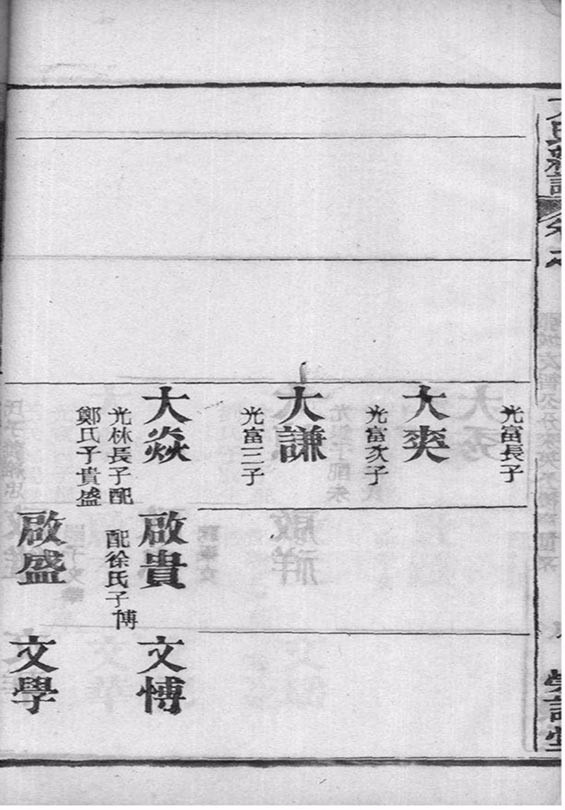 光富長子
大奕
光富次子
大謙
光富三子
大焱
光林長子配
鄭氏子貴盛
啟貴
配徐氏子博
啟盛
文博
文學